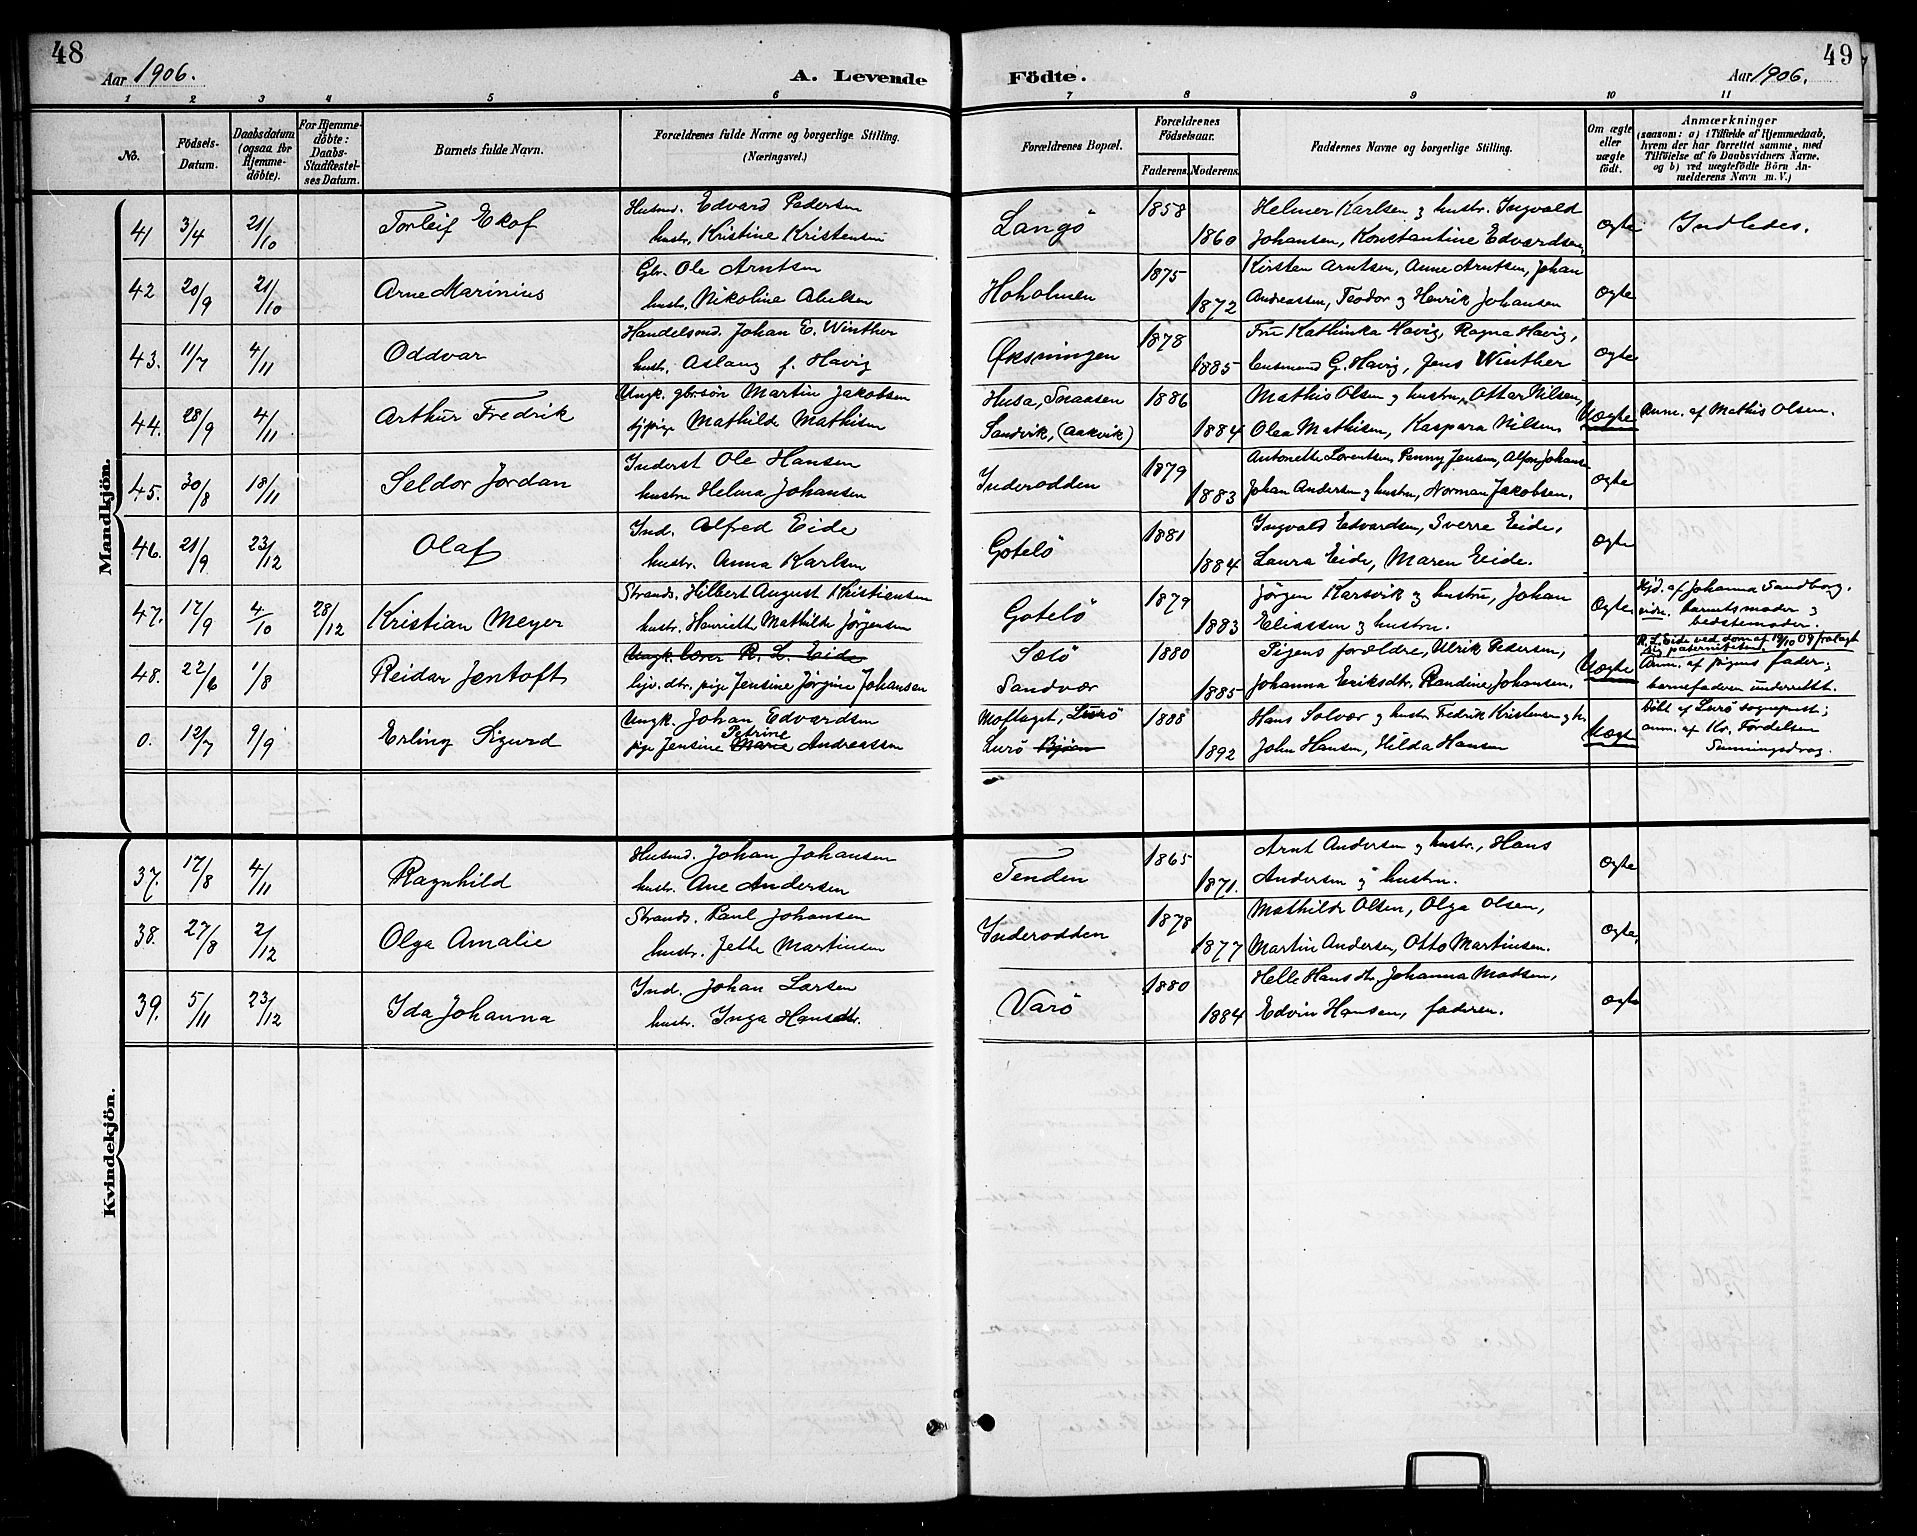 48
Aar 1906.
A. Levende
Födte.
Aar 1906.
49
1 2 3 4 5 6 7 8 9 10 11
No.
Födsels-Datum.
Daabsdatum (ogsaa for Hjemme-döbte).
For Hjemme-döbte: Daabs-Stadfæstel-ses Datum.
Barnets fulde Navn.
Forældrenes fulde Navne og borgerlige Stilling. (Næringsvei.)
Forældrenes Bopæl.
Forældrenes Födselsaar.
Faderens. Moderens.
Faddernes Navne og borgerlige Stilling.
Om ægte eller uægte födt.
Anmærkninger
(saasom: a) i Tilfælde af Hjemmedaab,
hvem der har forrettet samme, med
Tilföielse af to Daabsvidners Navne,
og b) ved uægtefödte Börn An-
melderens Navn m. V.)
Mandkjön.
41 3/4 21/10 Torleif Ekof Husmd. Edvard Pedersen Langö 1858 Helmer Karlsen & hustr. Ingvald
hustr. Kristine Kristensen 1860 Johansen, Konstantine Edvardsen, ægte Indledes.
42 20/9 21/10 Arne Marinius Gbr. Ole Arntsen Hoholmen 1875 Kirsten Arntsen, Anne Arntsen, Johan
hustr. Nikoline Abelsen 1872 Andreassen, Teodor & Henrik Johansen ægte
43. 11/7 4/11 Oddvar Handelsmd. Johan E. Winther Øksningen 1878 Fru Kathinka Havig, Ragna Havig,
hustr. Aslaug f. Havig 1885 lensmand G. Havig, Jens Winther ægte
44. 28/9 4/11 Arthur Fredrik Ungk. gbrsön Martin Jakobsen Husa, Snaasen 1886 Mathis Olsen & hustru, Ottar Nilsen,
pige Mathilde Mathisen Sandvik, (Aakvik) 1884 Olea Mathisen, Kaspara Nilsen Uægte Anm. af Mathis Olsen.
45. 30/8 18/11 Seldor Jordan Inderst Ole Hansen Inderodden 1879 Antonette Lorentsen, Penny Jensen, Alfon Johanse
hustru Helma Johansen 1883 Johan Andersen & hustru, Norman Jakobsen. ægte
46. 21/9 23/12 Olaf Ind. Alfred Eide Gotelö 1881 Ingvald Edvardsen, Sverre Eide,
hustr. Anna Karlsen 1884 Laura Eide, Maren Eide. ægte
47. 17/9 4/10 28/12 Kristian Meyer Strands. Hilbert August Kristiansen Gotelö 1879 Jörgen Karsvik & hustru, Johan
hustr. Henriette Mathilde Jörgensen 1883 Eliassen & hustru. Ægte Hjd. af Johanna Sandborg.
vidn. barnets moder &
bedstemoder.
48. 22/6 1/8 Reidar Jentoft Ungk. lærer R. L. Eide Sælö 1880 Pigens forældre, Ulrik Pedersen,
pige Jensine Jörgine Johansen Sandvær 1885 Johanna Eriksdtr. Randine Johansen. Uægte
R. L. Eide ved dom af 19/10 09 fralagt
sig paterniteten.
Anm. af pigens fader;
barnefaderen underrettet.
0. 12/7 9/9 Erling Sigurd Ungk. Johan Edvardsen Moflaget, Lurö 1888 Hans Solvær & hustr. Fredrik Kristensen & hr.
Petrine
pige Jensine Marie Andreassen Lurö Bjöen 1892 John Hansen, Hilda Hansen Uægte
Döbt af Lurö sogneprest;
anm. af Kr. Fordelsen
Kvindekjön.
37. 17/8 4/11 Ragnhild Husmd. Johan Johansen Tenden 1865 Arnt Andersen & hustr., Hans
hustr. Ane Andersen 1871. Andersen & hustru. ægte
38. 27/8 2/12 Olga Amalie Strands. Paul Johansen Inderodden 1878 Mathilde Olsen, Olga Olsen,
hustr. Jette Martinsen 1877 Martin Andersen, Otto Martinsen. ægte,
39. 5/11 23/12 Ida Johanna Ind. Johan Larsen Varö 1880 Helle Hansdtr. Johanna Madsen,
hustr. Inga Hansdtr. 1884 Edvin Hansen, faderen. ægte